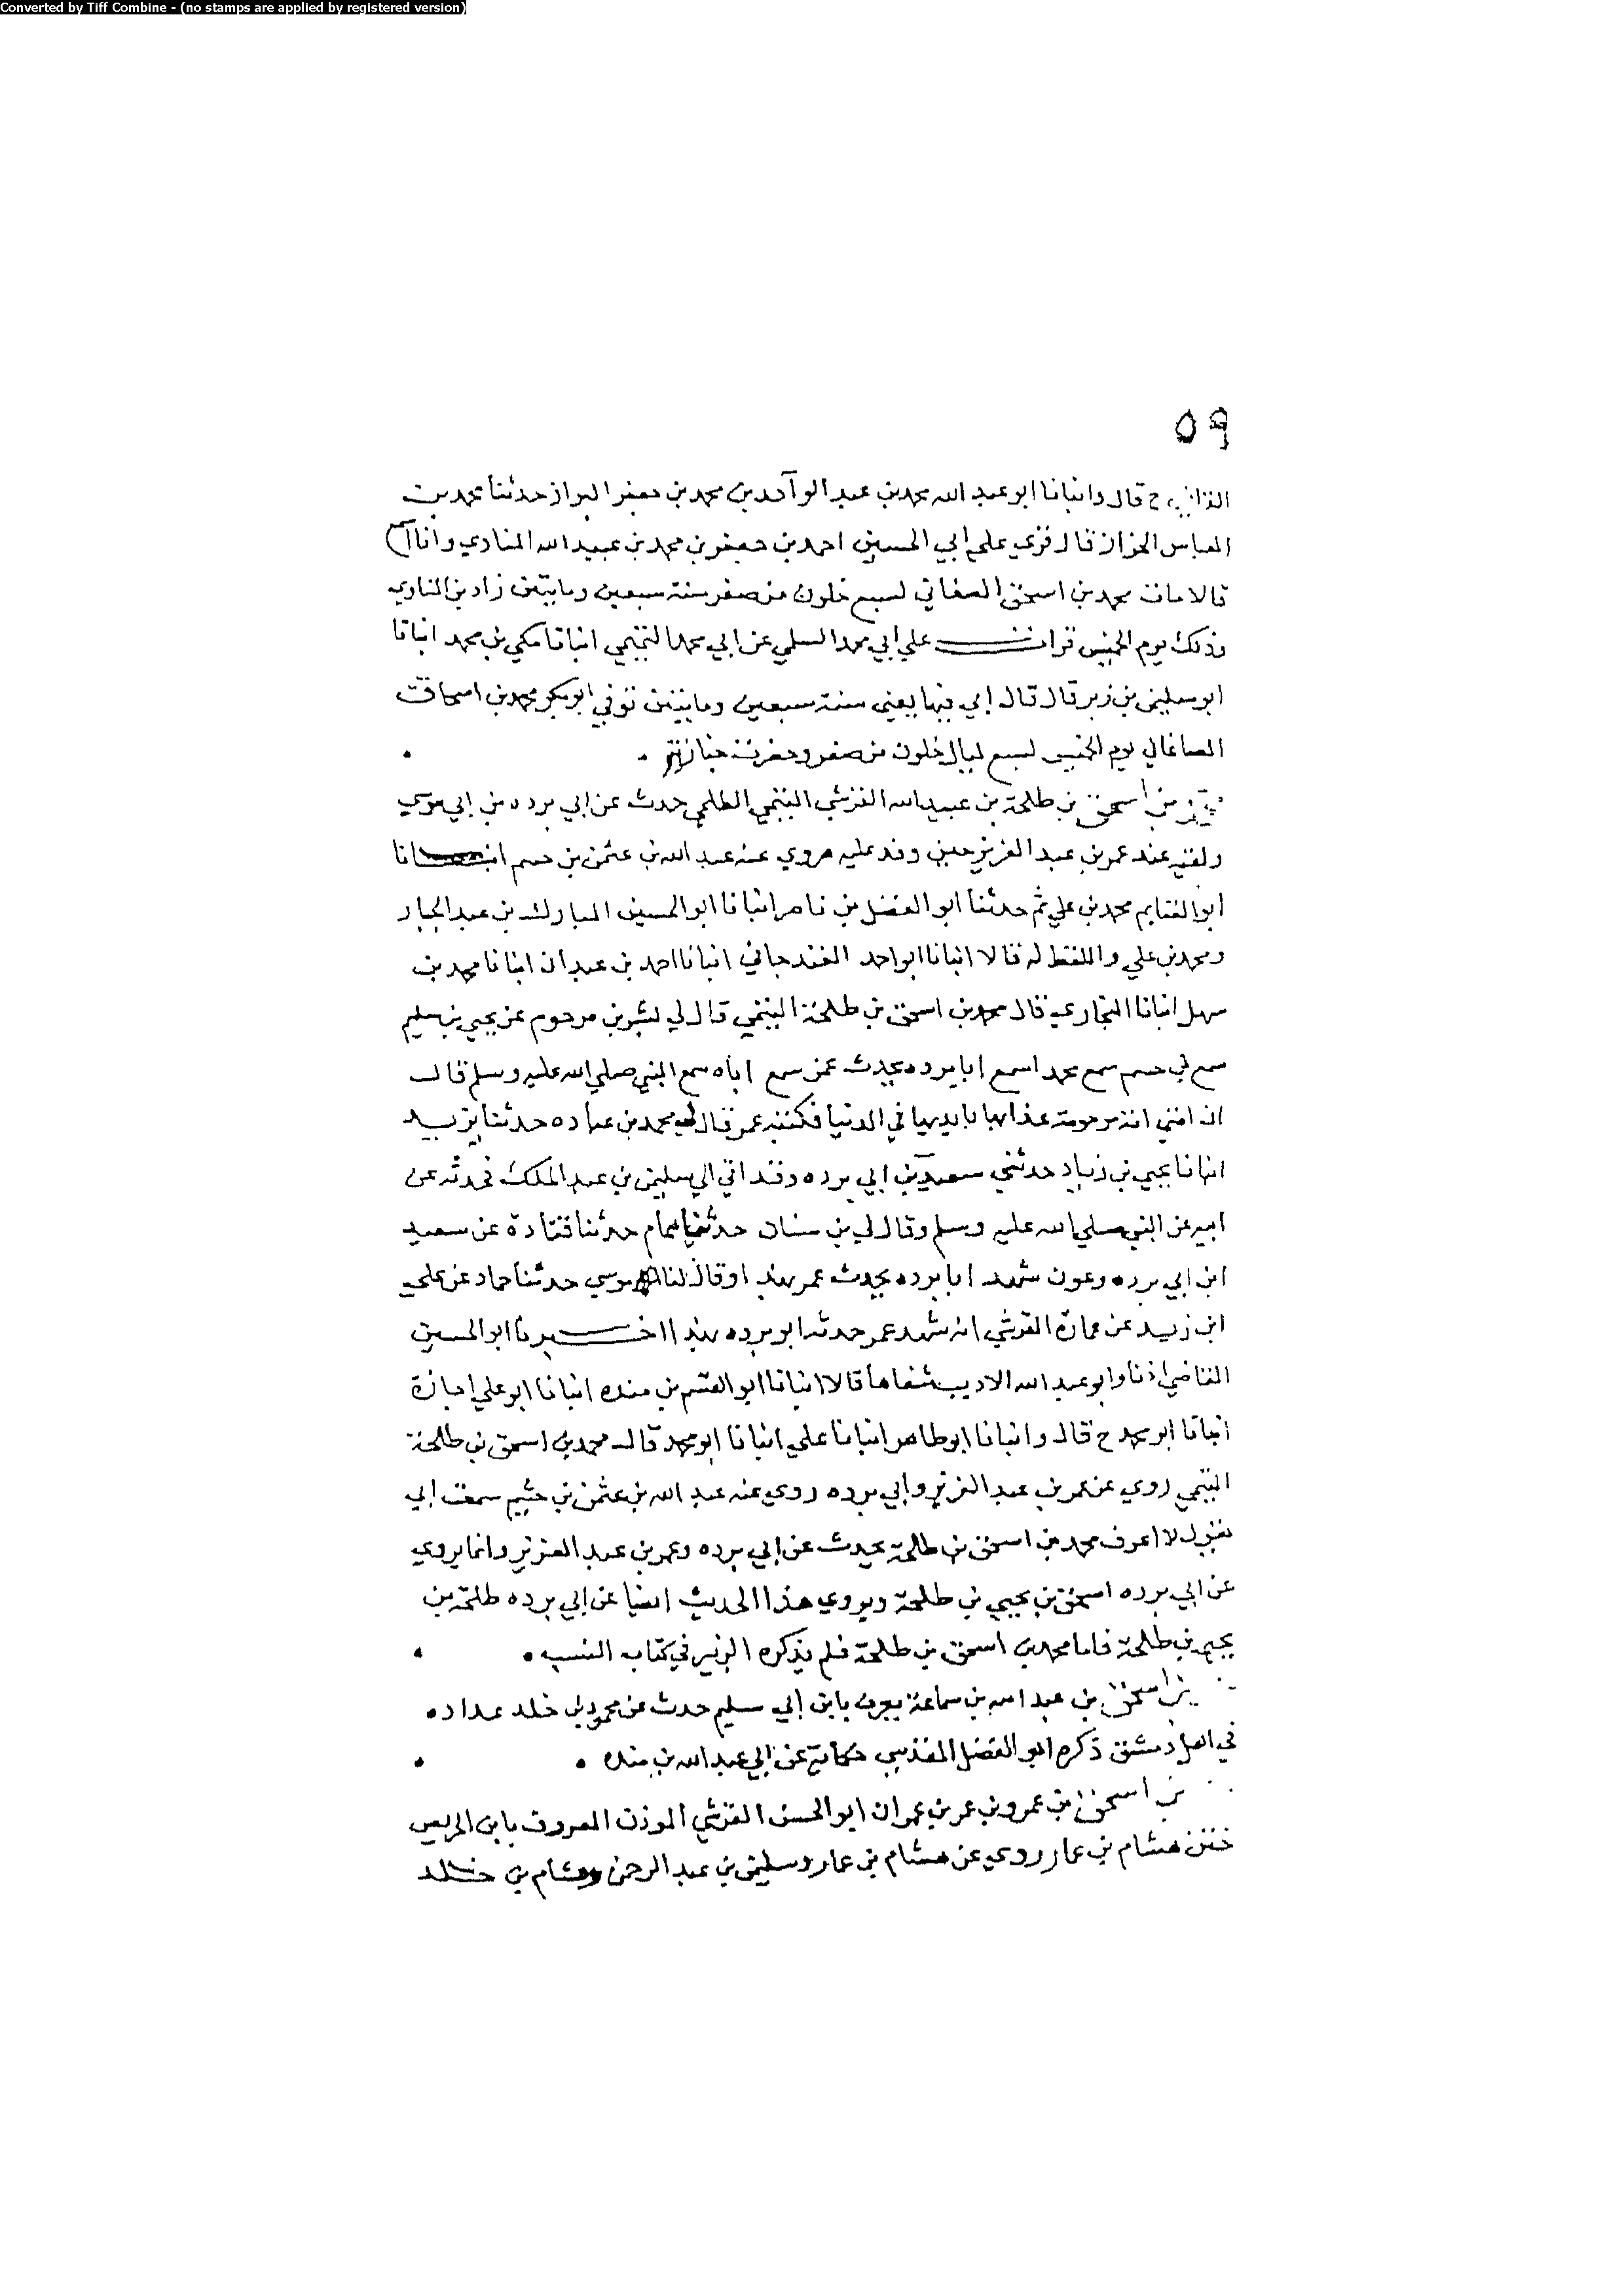 Converted by Tiff Combine - (no stamps are applied by registered version)
٥٩
ح قال وانبانا ابو عبد الله محمد بن عبد الواحد بن محمد بن جعفر البزاز حدثنا محمد بن
العباس الخزاز قال قرئ على ابي الحسين احمد بن جعفر بن محمد بن عبيد الله المنادي وانا
قالا مات محمد بن اسحق الصغاني لسبع خلون من صفر سنة سبعين ومايتين زاد بن المنادي
وذلك يوم الخميس قرات علي ابي محمد السلمي عن ابي محمد التميمي انبانا مكي بن محمد انبانا
ابو سليمن بن زبر قال قال ابي فيها يعني سنة سبعين ومايتين توفي ابو بكر محمد بن اسحاق
الصاغاني يوم الخميس لسبع ليال خلون من صفر وحضرت جنازته
بن اسحق بن طلحة بن عبيد الله القرشي التيمي الطلحي حدث عن ابي برده بن ابي موسي
ولقيه عند عمر بن عبد العزيز حين وفد عليه روي عنه عبد الله بن عثمن بن حسم انبانا
ابو الغنايم محمد بن علي ثم حدثنا ابو الفضل بن ناصر انبانا ابو الحسين المبارك بن عبد الجبار
ومحمد بن علي واللفظ له قالا انبانا ابو احمد الغندجاني انبانا احمد بن عبدان انبانا محمد بن
سهل انبانا البخاري قال محمد بن اسحق بن طلحة التيمي قال لي بشر بن مرحوم عن يحيي بن سليم
سمع بن حسم سمع محمد اسمع ابا برده يحدث عمن سمع اباه سمع النبي صلي الله عليه وسلم قال
ان امتي امة مرحومة عذابها بايديها في الدنيا فكتبه عمر قال لي محمد بن عباده حدثنا يزيد
انبانا يحيي بن زياد حدثني سعيد بن ابي برده وفد ابي الي سليمن بن عبد الملك فحدثه عن
ابيه عن النبي صلي الله عليه وسلم وقال لي بن سنان حدثنا همام حدثنا قتادة عن سعيد
ابن ابي برده وعون شهد ابا برده يحدث عمر بهذا وقال لنا موسي حدثنا حماد عن علي
ابن زيد عن عمارة القرشي انه شهد عمر حدثه ابو برده بهذا اخبرنا ابو الحسين
القاضي اذنا وابو عبد الله الاديب شفاها قالا انبانا ابو القسم بن منده انبانا ابو علي اجازة
انبانا ابو محمد ح قال وانبانا ابو طاهر انبانا علي انبانا ابو محمد قال محمد بن اسحق بن طلحة
التيمي روي عن عمر بن عبد العزيز وابي برده روي عنه عبد الله بن عثمن بن خثيم سمعت ابي
يقول لا اعرف محمد بن اسحق بن طلحة يحدث عن ابي برده وعمر بن عبد العزيز وانما يروي
عن ابي برده اسحق بن يحيي بن طلحة ويروي هذا الحديث ايضا عن ابي برده طلحة بن
يحيي بن طلحة فاما محمد بن اسحق بن طلحة فلم يذكره الزبير في كتاب النسب
بن اسحق بن عبد الله بن سماعة يعرف بابن ابي سليم حدث عن محمود بن خلد عداده
في اهل دمشق ذكره ابو الفضل المقدسي حكاية عن ابي عبد الله بن منده
بن اسحق بن عمرو بن عمر بن عمران ابو الحسن القرشي الموذن المعروف بابن الحريص
ختن هشام بن عمار روي عن هشام بن عمار وسليمن بن عبد الرحمن وهشام بن خلد